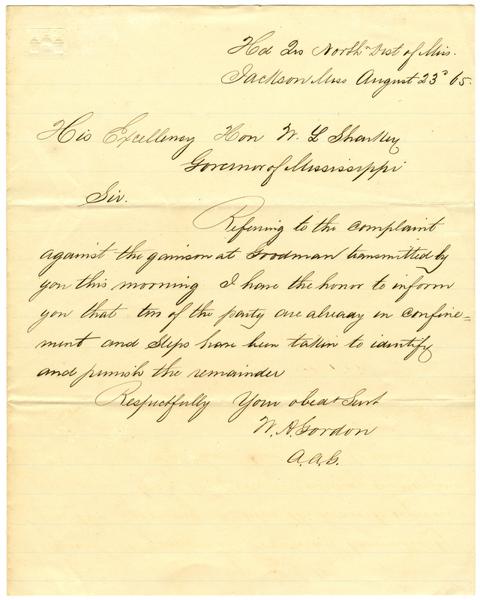 Hd Qrs North<sup>n</sup> Dist of Miss.
Jackson Miss August 23<sup>d</sup> 65.
His Excellency Hon W. L Sharkey
Governor of Mississippi
Sir.
Referring to the complaint
against the garrison at Goodman transmitted by
you this morning I have the honor to inform
you that two of the party are already in confine=
ment and steps have been taken to identify
and punish the remainder
Respectfully Your obedt Servt
W. A. Gordon
A.A.G.